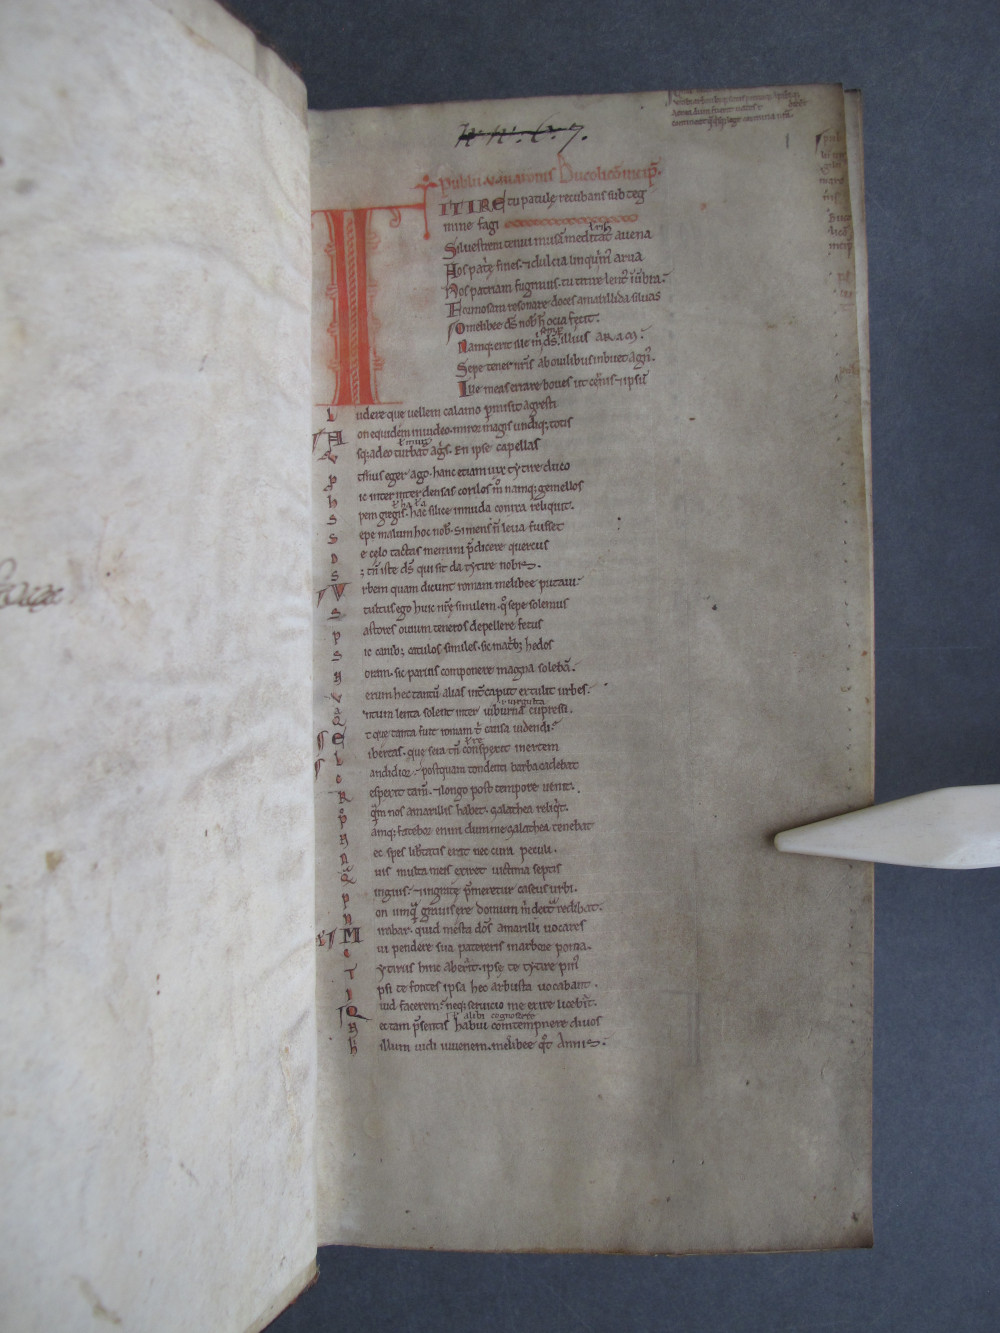 Publii v. maronis Bucolicoɴ incip̄.
TITIRE tu patulę recubans sub teg
mine fagi
Siluestrem tenui musā meditat̄ auena
Nos patrię fines ⁊ dulcia linquim̄ arua
Nos patriam fugimus. tu titire lent̄ ī ūbra
Formosam resonare doces amarillida siluas
O melibee d̄s nob̄ h̄ ocia fecit.
Namq; erit ille m̄ d̄s. illius ARAM.
Sepe tener nr̄is ab ouilibus inbuet agn̄.
Ille meas errare boues ut c̄nis ⁊ ipsū
Ludere que uellem calamo p̄misit agresti
Non equidem inuideo. miror magis undiq; totis
Vsq; adeo turbat̄ agr̄s. En ipse capellas
Protinus eger ago. hanc etiam uix tytire duco
hic inter densas corilos m̊ namq; gemellos
Spem gregis. hac silice innuda conixa reliquit.
Sepe malum hoc nob̄. si mens n̄ leua fuisset
De celo tactas memini p̄dicere quercus
S; tn̄ iste d̄s qui sit da tytire nobis.
Vrbem quam dicunt romam melibee putaui
Stultus ego huic nr̄ę similem. q̊ sepe solemus
Pastores ouium teneros depellere fetus
Sic canib; catulos similes. sic matrib; hedos
Noram. sic paruis componere magna solebā.
Verum hec tantū alias int̄ caput extulit urbes.
Quantum lenta solent inter uiburna cupressi.
Et que tanta fuit romam t̄ causa uidendi.
Libertas. que sera tn̄ conspexit inertem
Candidior. postquam tondenti barba cadebat
Respexit tam̄. ⁊ longo post tempore uenit.
Postq̄m nos amarillis habet. galathea reliq̄t.
Namq; fatebor enim dum me galathea tenebat
Nec spes lib̄tatis erat nec cura peculi.
Quis multa meis exiret uictima septis
Pinguis. ⁊ ingratę p̄meretur caseus urbi.
Non umq̄ grauis ere domum m̄ dext̄ redibat.
Mirabar. quid mesta d̊s amarilli uocares
Cui pendere sua patereris in arbore poma.
Tytirus hinc aberat. ipsę te tytire pin̄
Ipsi te fontes ipsa hec arbusta uocabant.
Quid facerem. neq; seruicio me exire licebat.
alibi cognoscere
hic illum uidi iuuenem. melibee q̊t Annis.